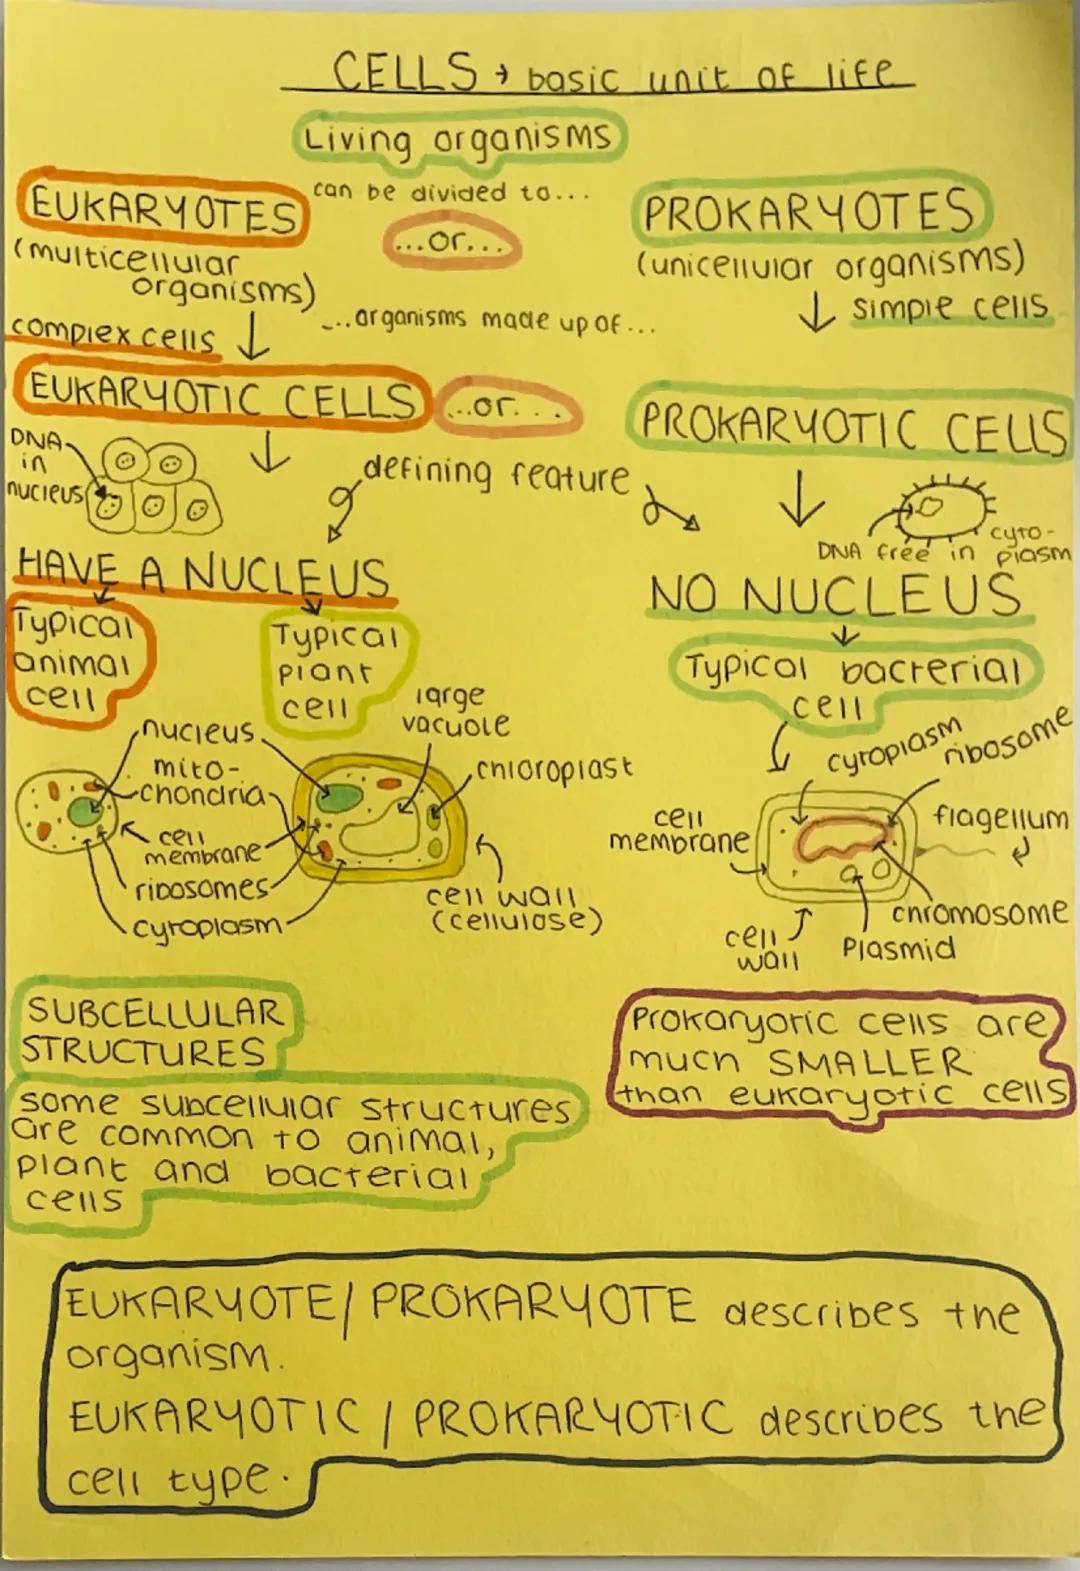 CELLS → basic unit of life
Living organisms
can be divided to...
EUKARYOTES
(multicellular
organisms)
...or...
PROKARYOTES
(unicellular organisms)
complex cells
...organisms made up of...
simple cells
EUKARYOTIC CELLS
...or...
PROKARYOTIC CELLS
DNA
in
nucleus
defining feature
DNA free in cyto-
plasm
HAVE A NUCLEUS
NO NUCLEUS
Typical
animal
cell
Typical
plant
cell
Typical bacterial
cell
nucleus
mito-
chondria
cell
membrane
ribosomes
cytoplasm
large
vacuole
chloroplast
cell wall
(cellulose)
cytoplasm
ribosome
cell
membrane
flagellum
cell
wall
Plasmid
chromosome
SUBCELLULAR
STRUCTURES
some subcellular structures
are common to animal,
plant and bacterial
cells
Prokaryotic cells are
much SMALLER
than eukaryotic cells
EUKARYOTE/ PROKARYOTE describes the
organism.
EUKARYOTIC / PROKARYOTIC describes the
cell type.